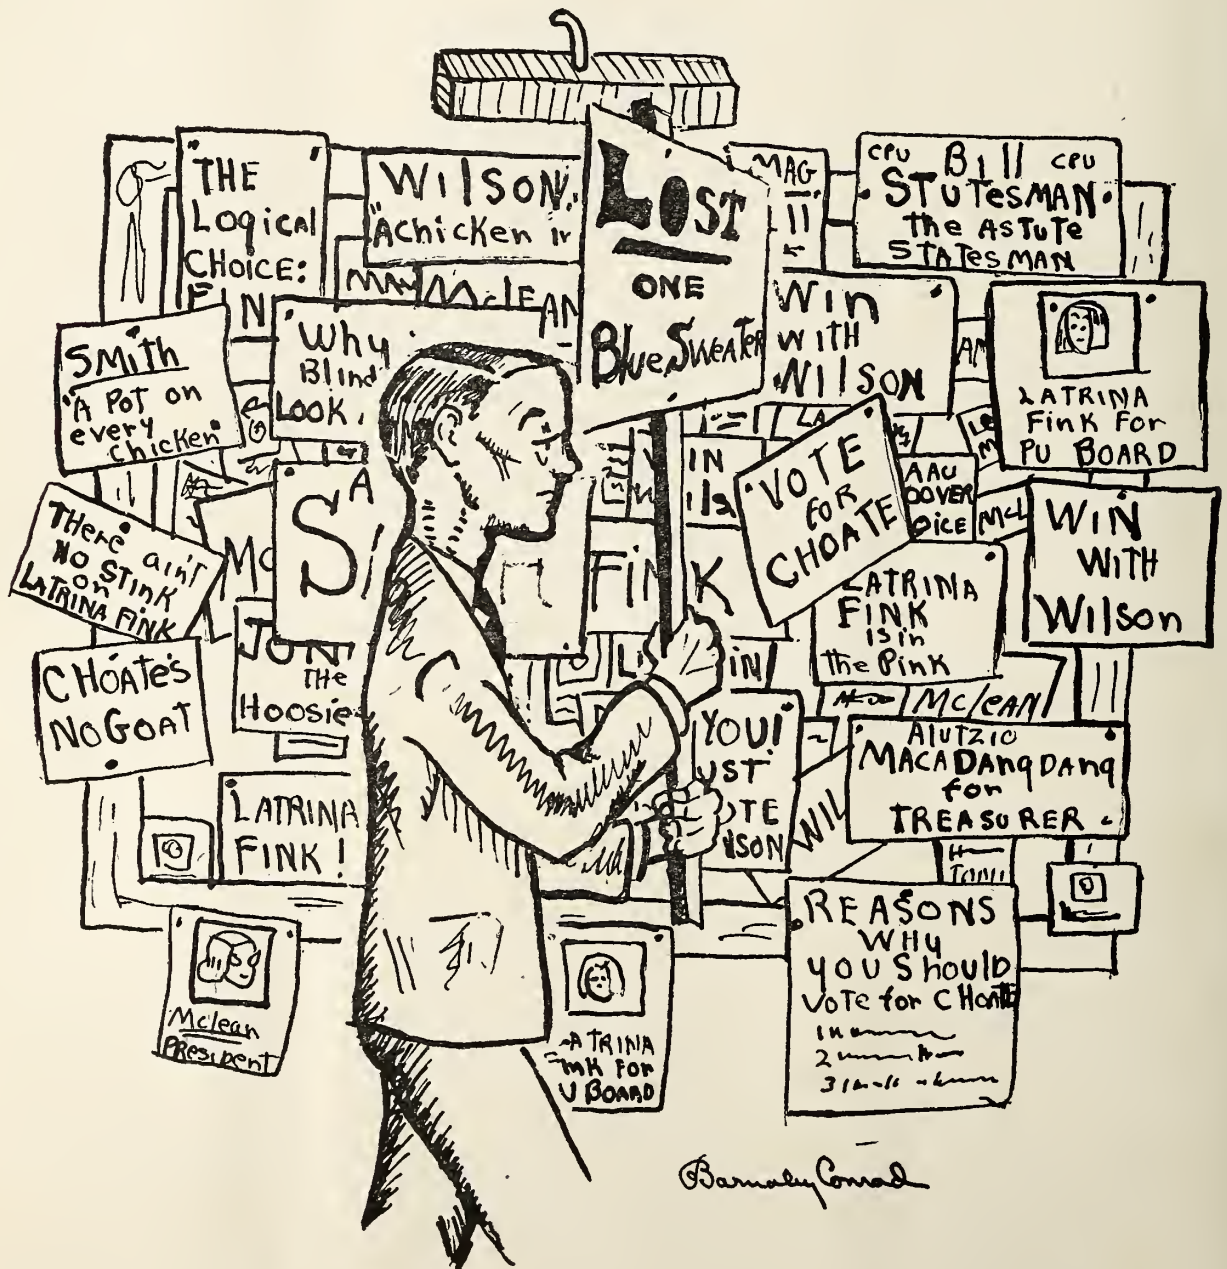 THE
Logical
CHOICE:
WILSON
"A chicken
LOST
ONE
Blue Sweater
MAG
CPU Bill CPU
STUTESMAN
the ASTUTE
STATESMAN
MCLEAN
SMITH
"A Pot on
every
chicken"
Why
Blind
LOOK
Win
WITH
WILSON
LATRINA
Fink For
PU BOARD
VOTE
for
CHOATE
AAU
There ain't
NO STINK
on
LATRINA FINK
FINK
WIN
WITH
Wilson
LATRINA
FINK
is in
the Pink
CHOATE'S
NO GOAT
THE
Hoosie
McLEAN
YOU!
Alutzio
MACADANGDANG
for
TREASURER
LATRINA
FINK!
WIL
REASONS
WHY
YOU Should
Vote for CHOATE
1
2
3
Mclean
President
ATRINA
INK FOR
U BOARD
Barnaby Conrad